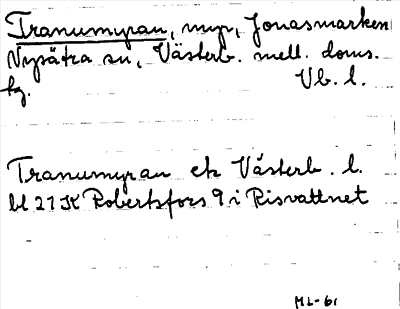 Tranumyran, myr, Jonasmarken
Nysätra sn, Västerb. mell. doms.
hg. Vb. l.
Tranumyran ek Västerb. l.
bl 21 K Robertsfors 9 i Risvattnet
ML-61